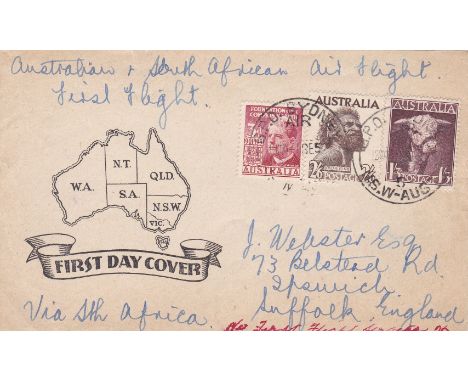 Australian & South African Air Flight.
First Flight.
AUSTRALIA
AUSTRALIA
AUSTRALIA
2/6
POSTAGE
1/3
POSTAGE
1/3
SYDNEY
AIR
N.S.W-AUST
W.A.
N.T.
QLD.
S.A.
N.S.W.
VIC.
FIRST DAY COVER
J. Webster Esq
73 Belstead Rd.
Ipswich
Suffolk England
Via Sth Africa.